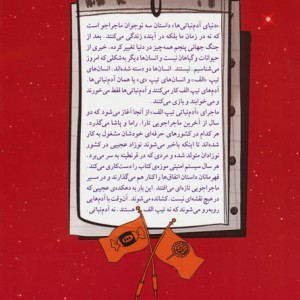 «دنیای آدم‌نباتی‌ها» داستان سه نوجوان ماجراجو است
که نه در زمان ما بلکه در آینده زندگی می‌کنند. بعد از
جنگ جهانی پنجم همه‌چیز در دنیا تغییر کرده. خبری از
حیوانات و گیاهان نیست و انسان‌ها دیگر به‌شکلی که امروز
می‌شناسیم، نیستند. انسان‌ها دو دسته شده‌اند. انسان‌های
تیپ «الف» و انسان‌های تیپ «ی» یا همان آدم‌نباتی‌ها.
آدم‌های تیپ الف کار می‌کنند و آدم‌نباتی‌ها فقط می‌خورند
و می‌خوابند و بازی می‌کنند.
ماجرای «آدم‌نباتی اپی» از آنجا آغاز می‌شود که دو
سال از آخرین ماجراجویی تارا، راما و پاشا می‌گذرد.
هر کدام در کشورهای حرفه‌ای خودشان مشغول به کار
شده‌اند تا اینکه باخبر می‌شوند نوزاد عجیبی در کشور
نوزادان متولد شده و مردی که در قرنطینه به سر می‌برد،
هر سال سیستم امنیتی موزه‌ی کتاب را دست‌کاری می‌کند.
قهرمانان داستان اتفاق‌ها را کنار هم می‌گذارند و در مسیر
ماجراجویی تازه‌ای می‌افتند. این بار به دهکده‌ی عجیبی که
در هیچ نقشه‌ای نیست، کشانده می‌شوند. آن‌وقت با آدم‌هایی
روبه‌رو می‌شوند که نه تیپ الف هستند، نه آدم‌نباتی.